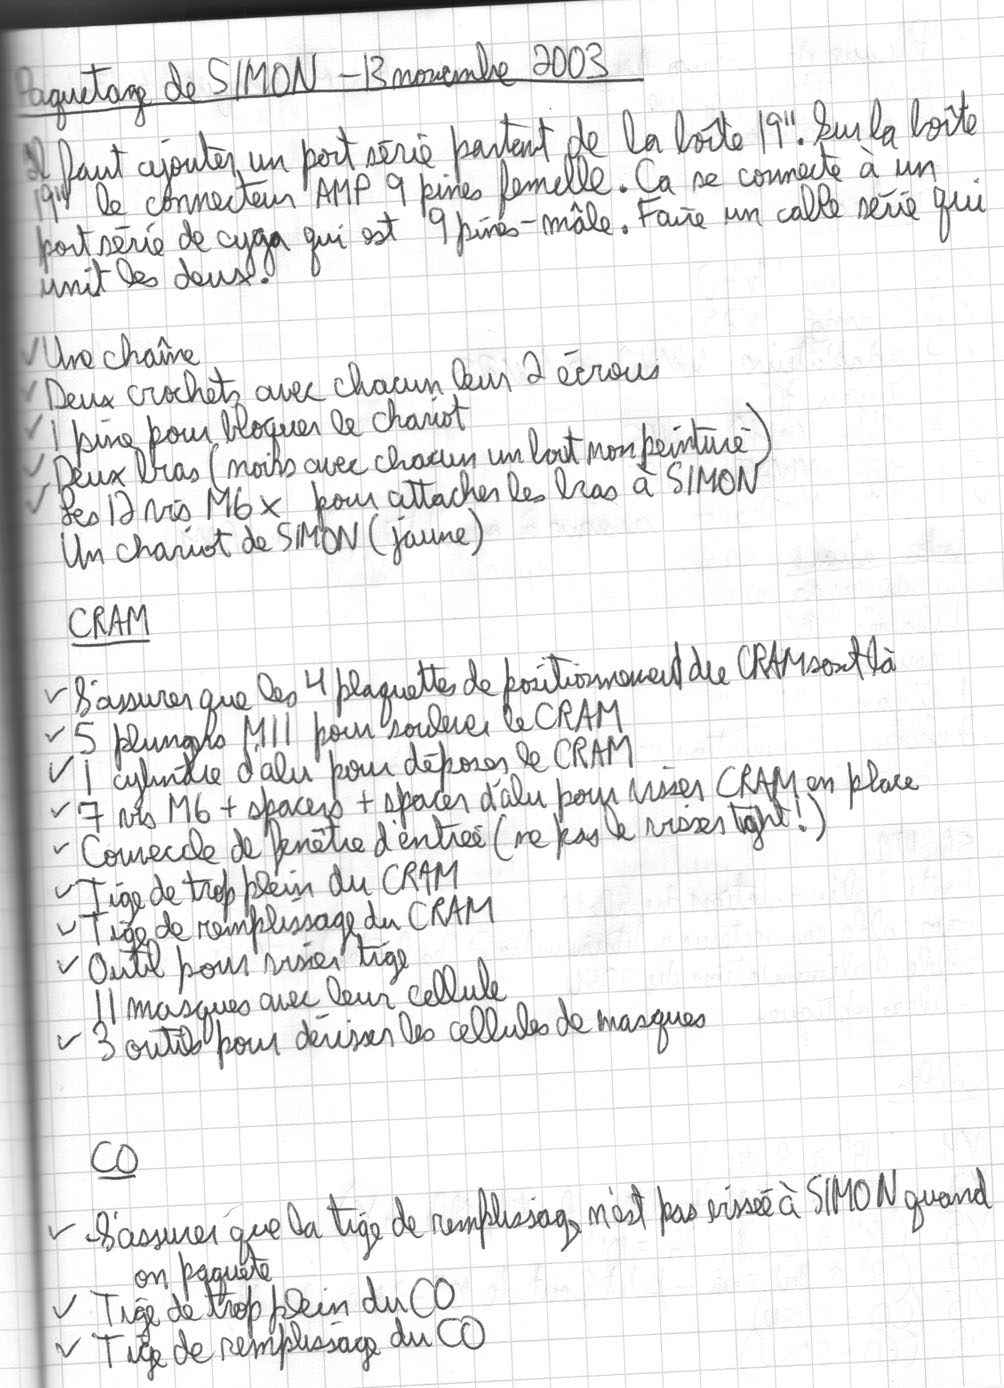 Paquetage de SIMON - 13 novembre 2003
Il faut ajouter un port série partant de la boîte 19". Sur la boîte
19" le connecteur AMP 9 pines femelle. Ça se connecte à un
port série de cyga qui est 9 pines-mâle. Faire un cable série qui
unit les deux.
✓ Une chaîne
✓ Deux crochets avec chacun leur 2 écrous
✓ 1 pine pour bloquer le chariot
✓ Deux bras (noirs avec chacun un bout non peinturé)
✓ Les 12 vis M6x pour attacher les bras à SIMON
Un chariot de SIMON (jaune)
CRAM
✓ S'assurer que les 4 plaquettes de positionnement du CRAM sont là
✓ 5 M11 pour soulever le CRAM
✓ 1 cylindre d'alu pour déposer le CRAM
✓ 7 vis M6 + spacers + spacer d'alu pour visser CRAM en place
✓ Couvercle de fenêtre d'entrée (ne pas le visser tight!)
✓ Tige de trop plein du CRAM
✓ Tige de remplissage du CRAM
✓ Outil pour visser tige
11 masques avec leur cellule
✓ 3 outils pour dévisser les cellules de masques
CO
✓ S'assurer que la tige de remplissage n'est pas vissée à SIMON quand
on paquete
✓ Tige de trop plein du CO
✓ Tige de remplissage du CO